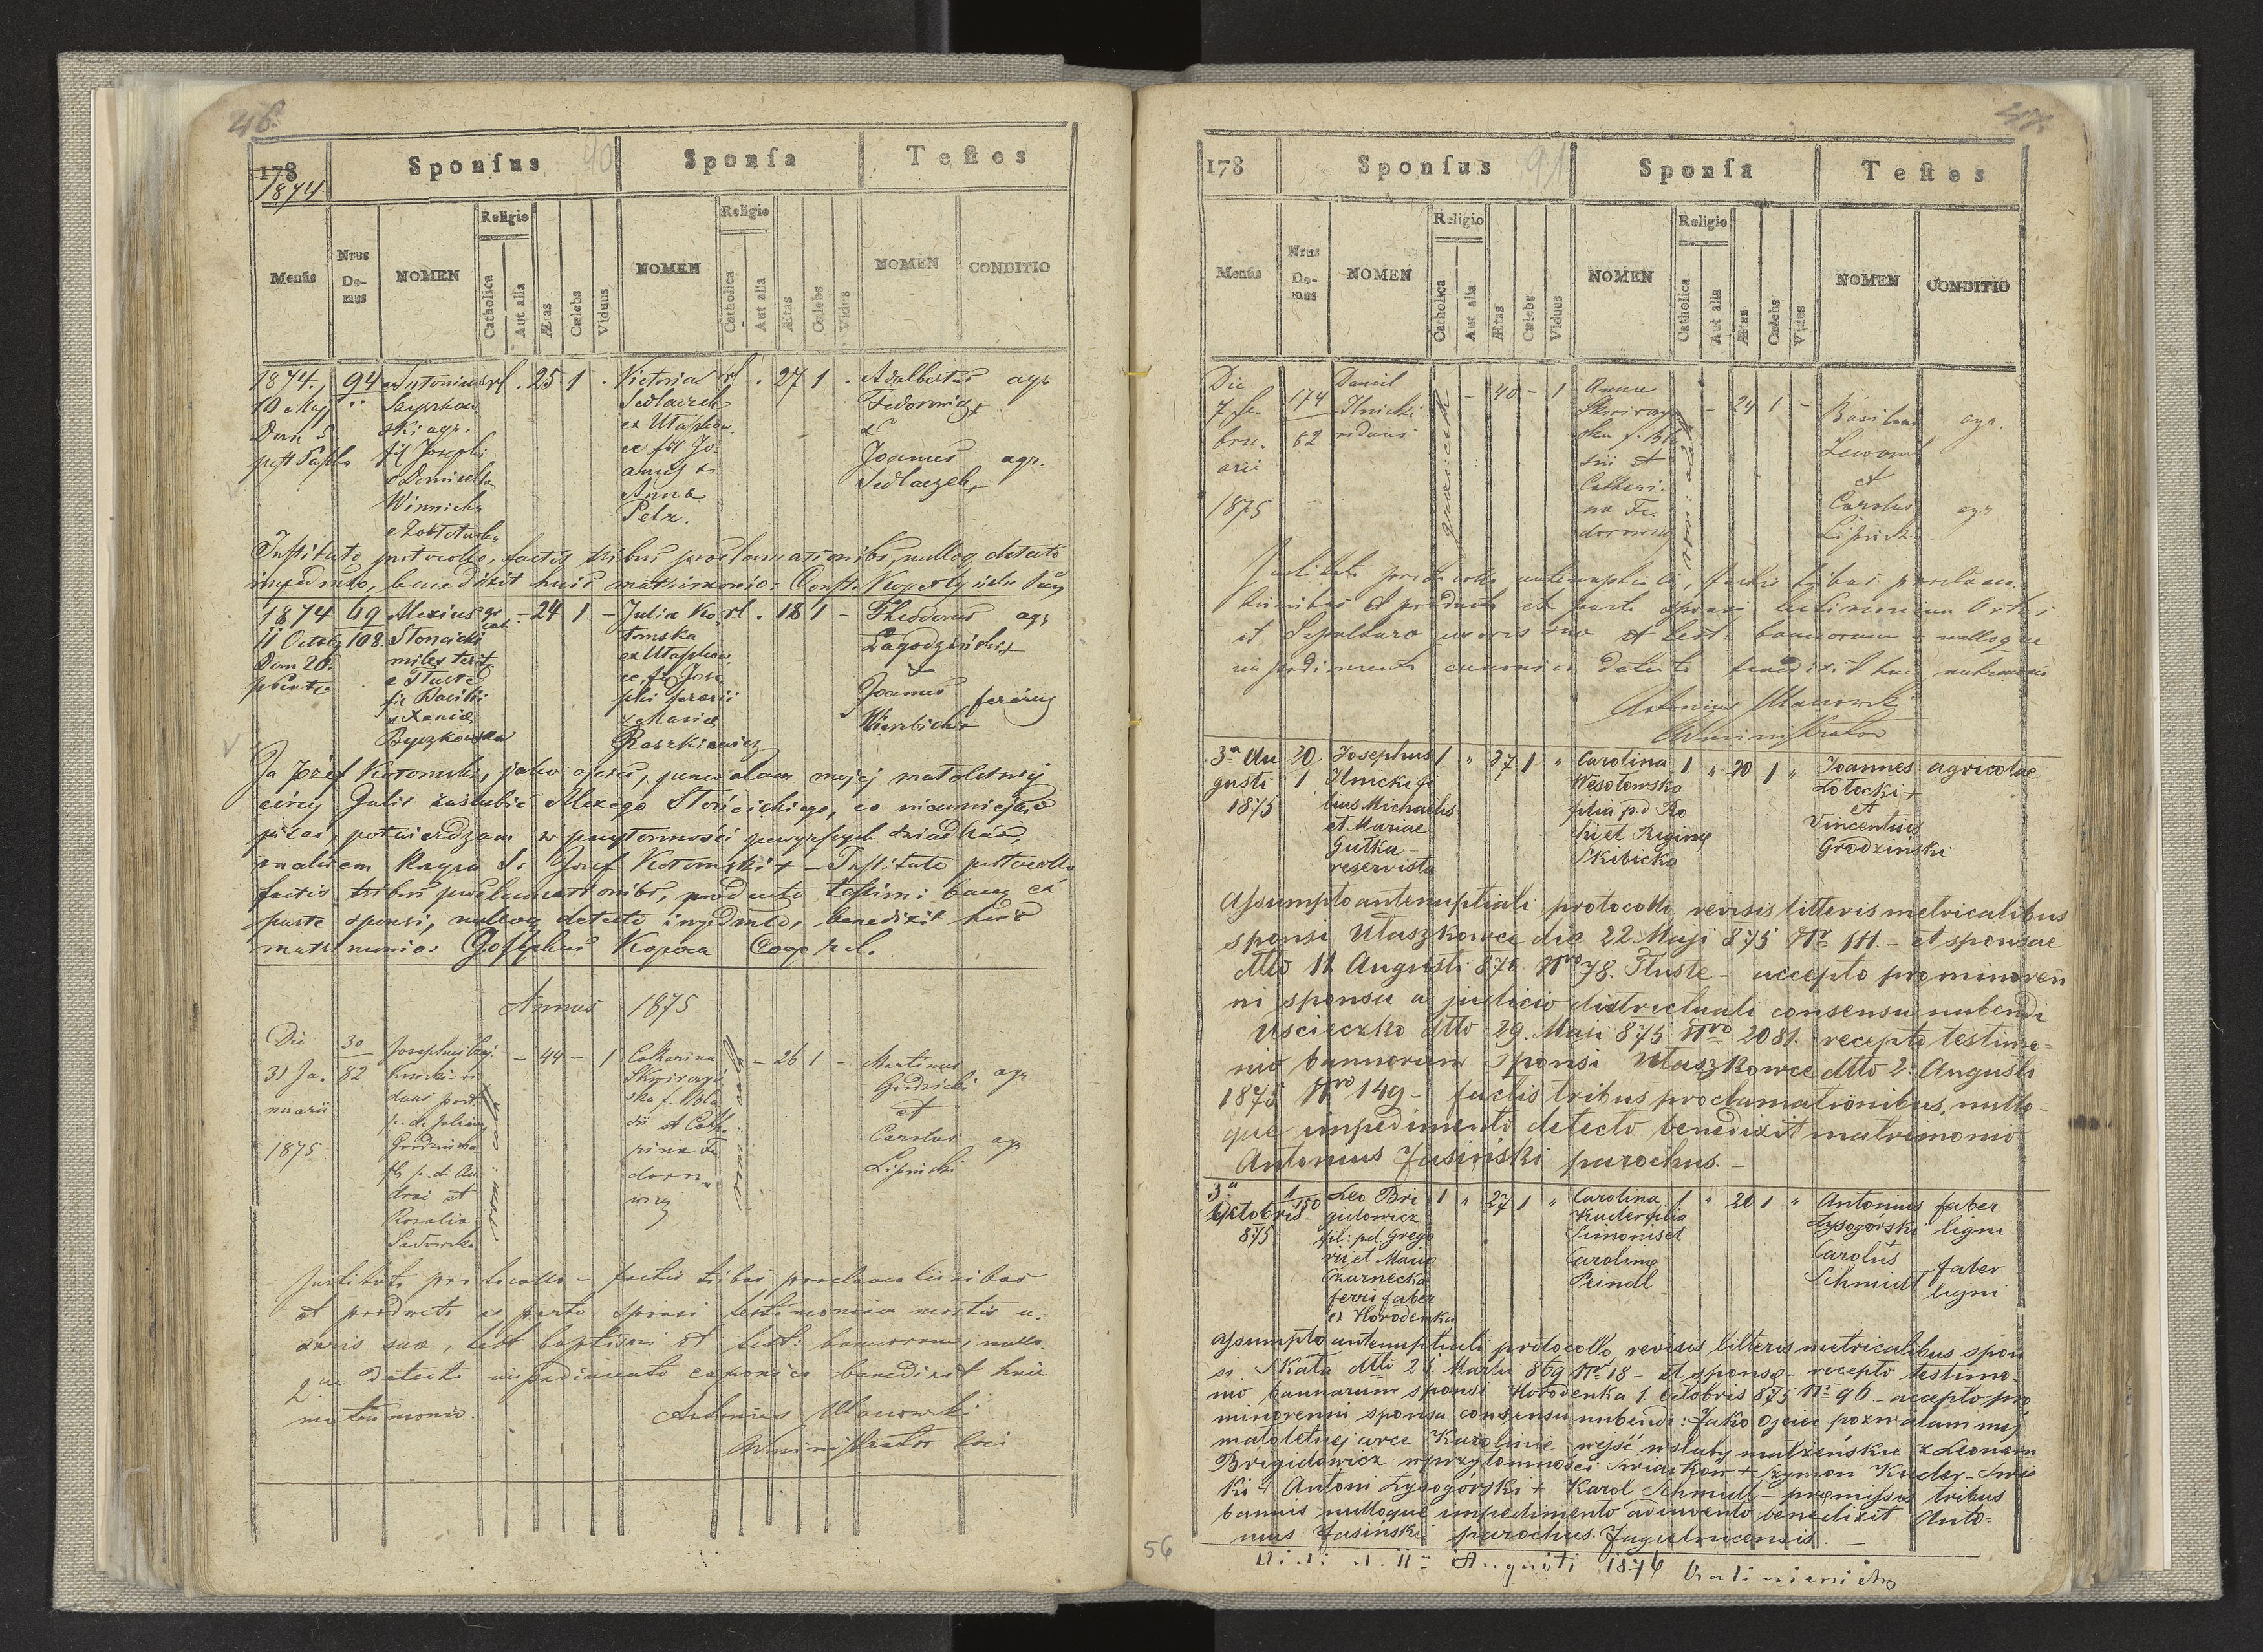 46.
178
1874
Sponsus
90
Sponsa
Testes
Mensis
Nrus
Domus
NOMEN
Religio
Catholica
Aut alia
Ætas
Cœlebs
Viduus
NOMEN
Religio
Catholica
Aut alia
Ætas
Cœlebs
Vidus
NOMEN
CONDITIO
1874.
10 Maji
Dom 5.
post Pascha
94
Antonius
Szyrkow
ski agr.
fil Josephi
Winnicka
rl . 25 1 .
Victoria
Sedlaczek
ex Ułaszkow
ce fil Jo
annis &
Anna
Pelz.
rl . 27 1 .
Adalbertus agr
Fedorowicz +
&
Joannes agr.
Sedlaczek +
Instituto protocollo, factis tribus proclamationibs, nulloq detecto
impedmto, benedixit huic matrimonio:
1874
11 Octobr
Dom 20.
p Pente
49
108
Alexius
Stoncicki
miles
e Tłuste
fil Basilii
& Xenia
Byczkowska
gr cat. - 24 1 -
Julia Ko
tomska
ex Ułaszkow
ce, fil Jose
phi ferarii
& Maria
Raszkiewicz
rl . 18 1 -
Theodorus agr
Łagodziński +
&
Joannes ferarius
Wierzbicki +
Ja Józef Kotomski, jako ojciec, pozwalam mojej małoletniej
córcy Julii zaślubić Alexego Stońcickiego, co nieumiejąc
pisać, potwierdzam w przytomności powyższych świadków,
znakiem krzyża S. Józef Kotomski + — Instituto protocollo
factis tribus proclamationibs, producto testim: bann ex
parte sponsi, nulloq detecto impedmto, benedixit huic
matrimonio: Josephus Kopeca Coop r. l.
Annus 1875
Die
31 Ja-
nuarii
1875
30
82
Josephus
duus post
p. d. Julian
Grodzinska
fil p. d. An
drei et
Rosalia
Sadowska
- 44 - 1
Catharina
Skorczyń
ska f. Bla
sii et Catha
rina Fe
doro
wicz
- 26 1 -
Martinus
Grodzicki agr
et
Carolus agr
Lipnicki
Instituto protocollo - factis tribus proclamationibus
et producto ex parte sponsi testimonium mortis u-
xoris suæ, test baptismi et test: bannorum, nullo
que detecto impedimento canonico benedixit huic
matrimonio. Antonius Ułanowski
Administrator loci
47.
178
Sponsus
91
Sponsa
Testes
Mensis
Nrus
Domus
NOMEN
Religio
Catholica
Aut alia
Ætas
Cœlebs
Viduus
NOMEN
Religio
Catholica
Aut alia
Ætas
Cœlebs
Vidus
NOMEN
CONDITIO
Die
7 Fe-
bru-
arii
1875
174
62
Daniel
Ilnicki
viduus
- 40 - 1
Anna
ska f. Bla
sii et
Cathari-
na Fe-
dorowicz
- 24 1 -
Basilius agr.
et
Carolus agr
Lipnicki
Instituto protocollo antenuptiali, factis tribus proclama-
tionibus et producto ex parte sponsi testimonium
et Sepulturo uxoris suæ et test: bannorum - nulloque
impedimento canonico detecto benedixit huic matrimonio
Antonius Ułanowski
Administrator
3a Au
gusti
1875
20
1
Josephus
Ilnicki fi
lius Michaelis
et Mariae
Gutka -
reservista
1 " 27 1 "
Carolina
Wesołowska
filia p.d Ro
chi et Reginæ
Skibicka
1 " 20 1 "
Joannes agricolae
Łotocki +
et
Vincentius
Grodzinski
Assumpto antenuptiali protocollo, revisis litteris metricalibus
sponsi Ułaszkowce die 22. Maji 875 Nr 111. - et sponsae
dtto 11 Augusti 876 Nro 78. Tłuste - accepto pro minoren
ni sponsa a judicio districtuali consensu nubendi
Uscieczko dtto 29. Maji 875 Nro 2081. recepto testimo-
nio bannorum sponsi Ułaszkowce dtto 2. Augusti
1875 Nro 149 - factis tribus proclamationibus, nullo-
que impedimento detecto benedixit matrimonio
Antonius Jasiński parochus. -
3a
Oktobris
875
1
150
Leo Bri
gidowicz
fil: p.d. Grego
rii et Maria
Czarnecka
ferri faber
ex Horodenka
1 " 27 1 "
Carolina
Kuder filia
Simonis et
Carolinæ
Peindl
1 " 20 1 "
Antonius faber
Łysogórski ligni
et
Carolus faber
Schmidt ligni
Assumpto antenuptiali protocollo, revisis litteris metricalibus spon
si Skała dtto 25. Martii 869 Nr 18 - et sponsæ - recepto testimo-
nio bannorum sponsi Horodenka 1. Octobris 875 Nr 96 - accepto pro
minorenni sponsa consensu nubendi: Jako ojciec pozwalam mej
małoletniej córce Karolinie wejść w śluby małżeńskie z Leonem
Brigidowicz w przytomności świadków + Szymon Kuder - Świad
ki + Antoni Łysogórski + Karol Schmidt - præmissis tribus
bannis nulloque impedimento adinvento benedixit Anto-
nius Jasiński parochus Jagielnicensis. -
56
Augusti 1876